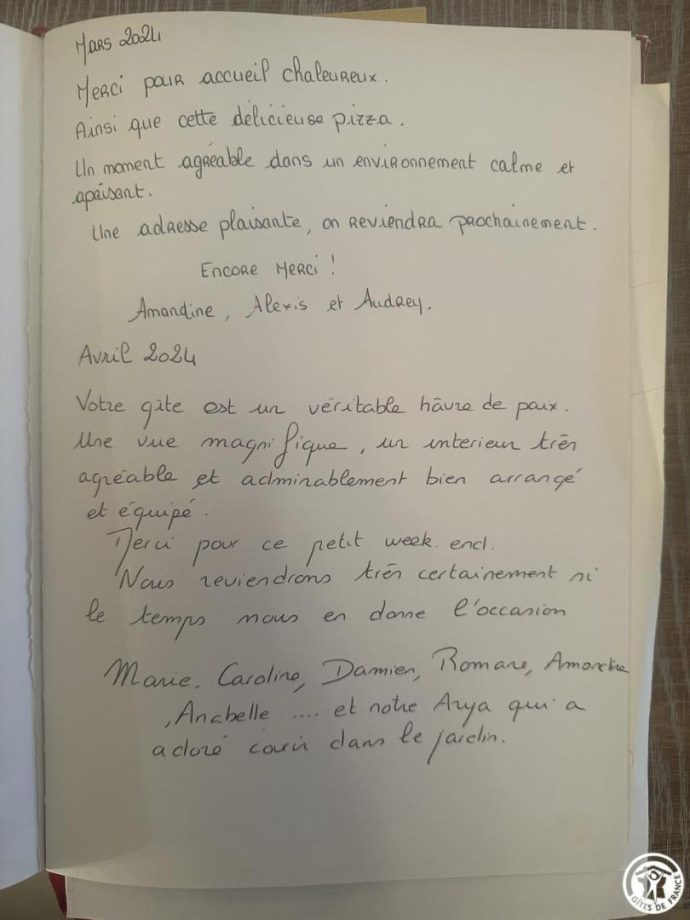 Mars 2024
Merci pour accueil chaleureux.
Ainsi que cette délicieuse pizza.
Un moment agréable dans un environnement calme et
apaisant.
Une adresse plaisante, on reviendra prochainement.
Encore merci !
Amandine, Alexis et Audrey.
Avril 2024
Votre gîte est un véritable hâvre de paix.
Une vue magnifique, un interieur très
agréable et adminablement bien arrangé
et équipé.
Merci pour ce petit week-end.
Nous reviendrons très certainement si
le temps nous en donne l'occasion
Marie, Caroline, Damien, Romane, Amandine
, Anabelle .... et notre Arya qui a
adoré courir dans le jardin.
GÎTES DE FRANCE